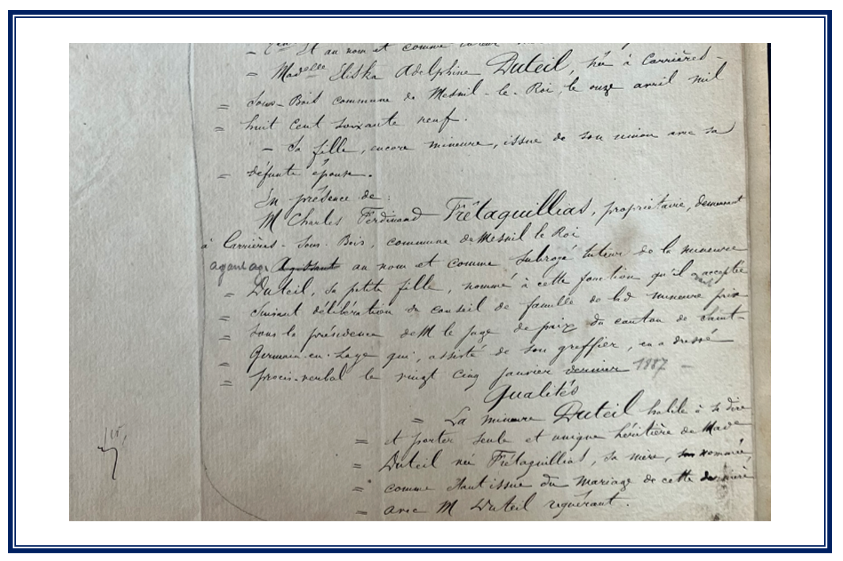 2ent Et au nom et comme tuteur
= Madelle Eliska Adelphine Duteil, née à Carrières-
= Sous-Bois commune de Mesnil-le-Roi, le onze avril mil
= huit cent soixante neuf.
– Sa fille, encore mineure, issue de son union avec sa
= défunte épouse.
En présence de :
M Charles Ferdinand Frétaquillias, propriétaire, demeurant
à Carrières-Sous-Bois, commune de Mesnil le Roi
au nom et comme subrogé tuteur de la mineure
= Duteil, sa petite fille, nommé à cette fonction qu'il a acceptée
= suivant délibération du conseil de famille de lad mineure prise
= sous la présidence de M le juge de paix du canton de Saint-
= Germain-en-Laye qui, assisté de son greffier, en a dressé
= procès-verbal le vingt cinq janvier dernier 1887 –
Qualités
= La mineure Duteil habile à se dire
= et porter seule et unique héritière de Made
= Duteil née Frétaquillias, sa mère, sus nommée,
= comme étant issue du mariage de cette dernière
= avec M Duteil requérant.